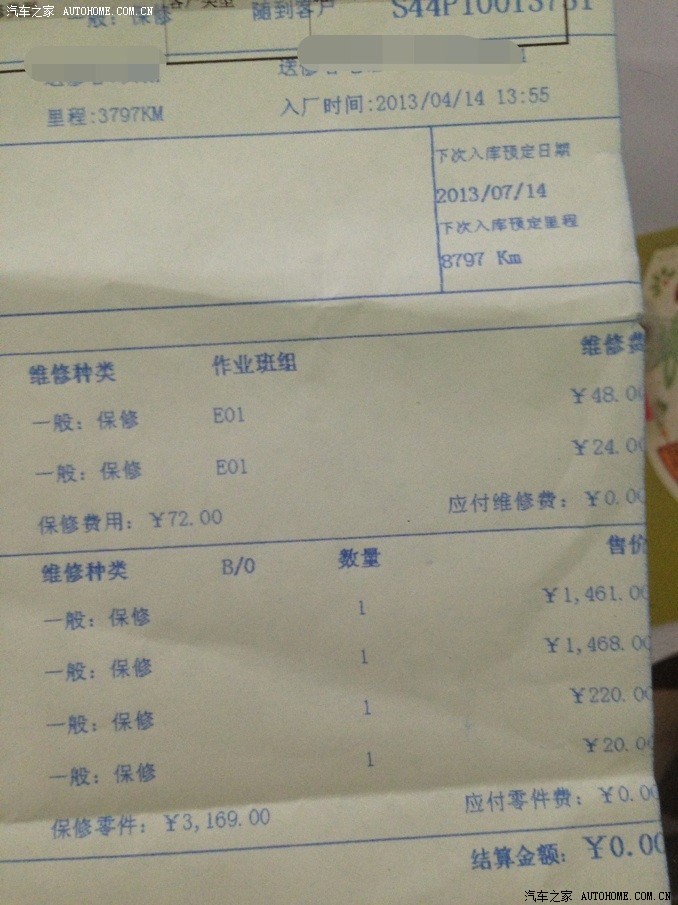 汽车之家 AUTOHOME.COM.CN
一般：保修 客户类型 随到客户 S44P10013751
里程:3797KM 入厂时间:2013/04/14 13:55
下次入库预定日期
2013/07/14
下次入库预定里程
8797 Km
维修种类 作业班组 维修费
一般：保修 E01 ¥48.00
一般：保修 E01 ¥24.00
保修费用：¥72.00 应付维修费：¥0.00
维修种类 B/O 数量 售价
一般：保修 1 ¥1,461.00
一般：保修 1 ¥1,468.00
一般：保修 1 ¥220.00
一般：保修 1 ¥20.00
保修零件：¥3,169.00 应付零件费：¥0.00
结算金额：¥0.00
汽车之家 AUTOHOME.COM.CN